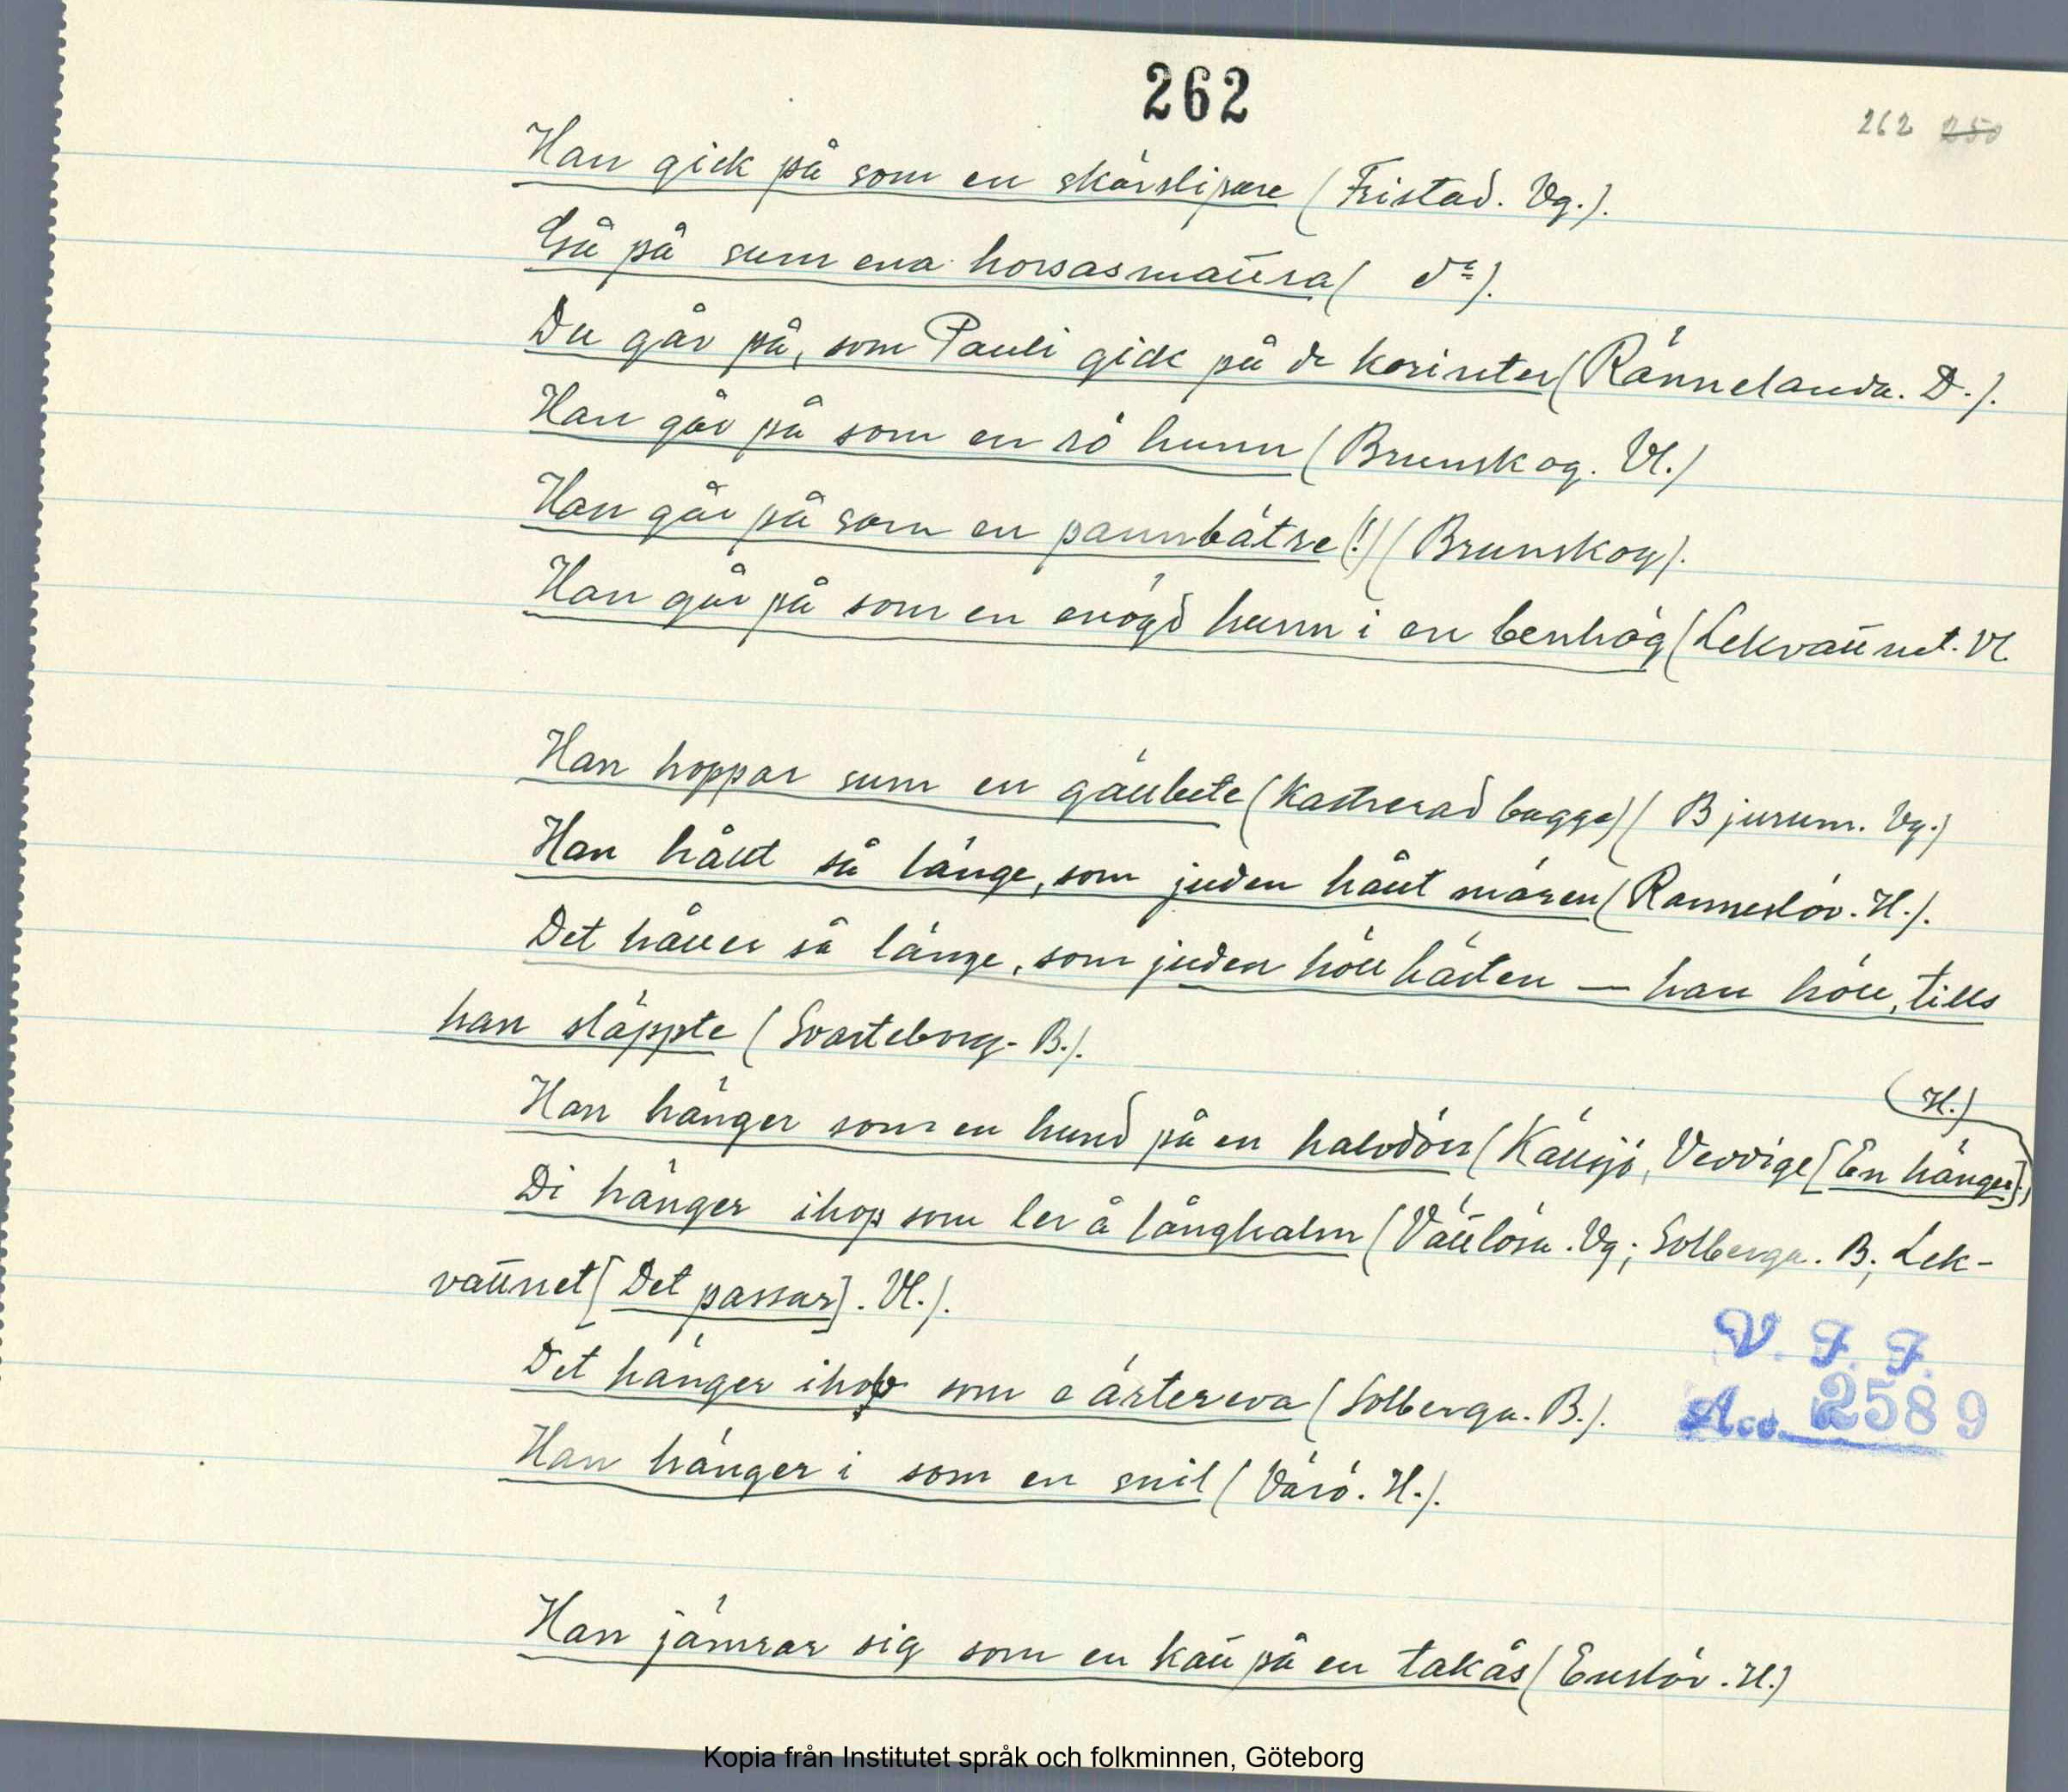 262
262 250
Han gick på som en skärslipare (Fristad. Vg.).
Gå på sum ena horsasmaura ( do).
Du går på, som Pauli gick på de korinter (Rännelanda. D.).
Han går på som en rö hunn (Brunskog. Vl.)
Han går på som en pannbätre (!) (Brunskog).
Han går på som en enögd hunn i en benhög (Lekvattnet. Vl.
Han hoppar sum en gäubete (kastrerad bagge) (Bjurum. Vg.)
Han hållt så länge, som juden hållt mären (Ranneslöv. H.).
Det håller så länge, som juden höll hästen — han höll, tills
han släppte (Svarteborg. B.).
(H.)
Han hänger som en hund på en halvdörr (Källsjö, Veddige [En hänger].)
Di hänger ihop som ler å långhalm (Vättlösa. Vg; Solberga. B; Lek-
vattnet [Det passar]. Vl.).
Det hänger ihop som e ärtereva (Solberga. B.).
Han hänger i som en snil (Värö. H.).
V. F. F.
Acc. 2589
Han jämrar sig som en katt på en takås (Enslöv. H.)
Kopia från Institutet språk och folkminnen, Göteborg